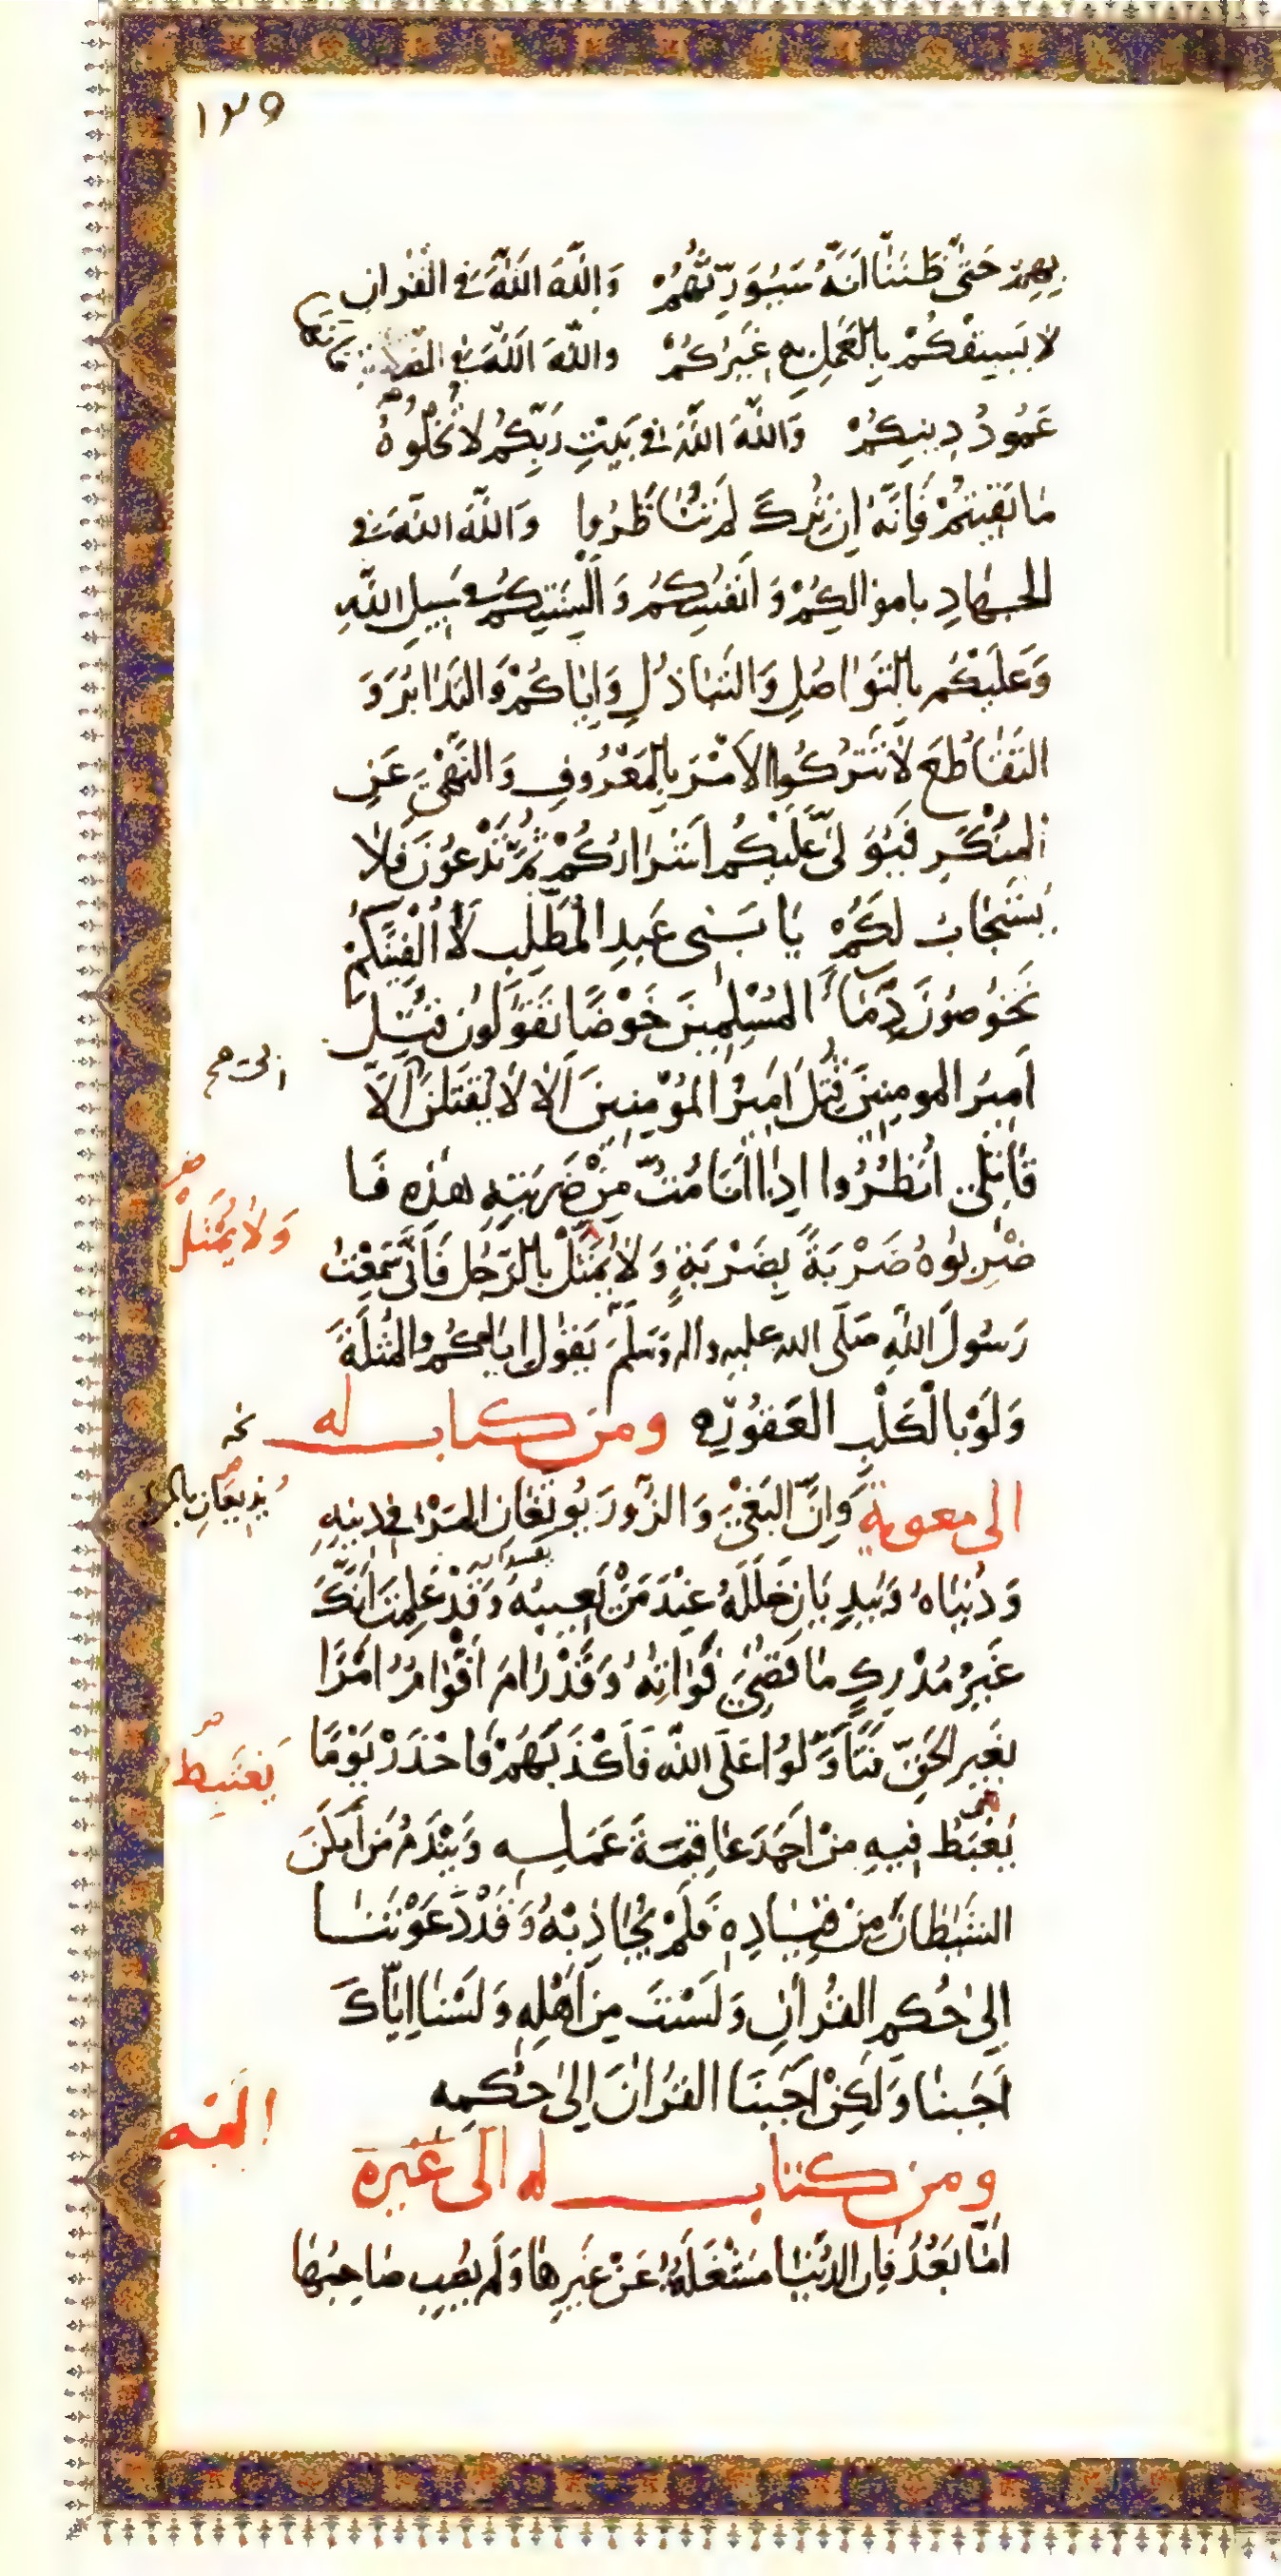 ١٢٩
بِهِمْ حَتّٰى ظَنَنَّا اَنَّهُ سَيُوَرِّثُهُمْ وَاللّٰهَ اَللّٰهَ فِي الْقُرْاٰنِ
لا يَسْبِقُكُمْ بِالْعَمَلِ بِهِ غَيْرُكُمْ وَاللّٰهَ اَللّٰهَ فِي الصَّلٰوةِ فَاِنَّهَا
عَمُودُ دِينِكُمْ وَاللّٰهَ اَللّٰهَ فِي بَيْتِ رَبِّكُمْ لا تُخَلُّوهُ
مٰا بَقِيتُمْ فَاِنَّهُ اِنْ تُرِكَ لَمْ تُنٰاظَرُوا وَاللّٰهَ اَللّٰهَ فِي
الجِهٰادِ بِاموٰالِكُمْ وَ اَنْفُسِكُمْ وَ اَلْسِنَتِكُمْ فِي سَبِيلِ اللّٰهِ
وَعَلَيْكُمْ بِالتَّوٰاصُلِ وَالتَّبٰاذُلِ وَاِيّٰاكُمْ وَالتَّدٰابُرَ وَ
التَّقٰاطُعَ لاٰ تَتْرُكُوا الاَمْرَ بِالْمَعْرُوفِ وَالنَّهْيَ عَنِ
المُنْكَرِ فَيُوَلّٰى عَلَيْكُمْ اَشْرٰارُكُمْ ثُمَّ تَدْعُونَ فَلاٰ
يُسْتَجٰابُ لَكُمْ يٰا بَنِي عَبدِ المُطَّلِبِ لاٰ اُلْفِيَنَّكُمْ
تَخُوضُونَ دِمٰاءَ المُسْلِمِينَ خَوْضًا تَقُولُونَ قُتِلَ
اَمِيرُ المومِنِينَ قُتِلَ اَمِيرُ المُؤْمِنِينَ اَلاٰ لاٰ يُقْتَلَنَّ اِلاّٰ
قٰاتِلي انْظُرُوا اِذٰا اَنَا مُتُّ مِنْ ضَرْبَتِهِ هٰذِهِ فَا
ضْرِبُوهُ ضَرْبَةً بِضَرْبَةٍ وَ لاٰ يُمَثَّلْ بِالرَّجُلِ فَاِنّي سَمِعْتُ
رَسُولَ اللّٰهِ صَلَّى الله عليه واله وَسَلَّمَ يَقُولُ اِيّٰاكُمْ وَالمُثْلَةَ
وَلَوْ بِالْكَلْبِ العَقُورِ ومن كتاب له
الى معوية وَاِنَّ البَغْيَ وَ الزُّورَ يُوتِغٰانِ المَرْءَ فِي دِينِهِ
وَ دُنْيٰاهُ وَيُبْدِيَانِ خَلَلَهُ عِنْدَ مَنْ يَعِيبُهُ وَقَدْ عَلِمْتَ اَنَّكَ
غَيْرُ مُدْرِكٍ مٰا قُضِيَ فَوٰاتُهُ وَ قَدْ رٰامَ اَقْوٰامٌ اَمْرًا
بِغَيرِ الحَقِّ فَتَاَوَّلُوا عَلَى اللّٰهِ فَاَكْذَبَهُمْ فَاحْذَرْ يَوْمًا
يُغْبَطُ فِيهِ مَنْ اَحْمَدَ عٰاقِبَةَ عَمَلِهِ وَيَنْدَمُ مَن اَمْكَنَ
الشَّيْطٰانَ مِنْ قِيٰادِهِ فَلَمْ يُجٰاذِبْهُ وَ قَدْ دَعَوْتَنٰا
اِلٰى حُكمِ القُرْاٰنِ وَ لَسْتَ مِن اَهْلِهِ وَ لَسْنٰا اِيّٰاكَ
اَجَبْنٰا وَ لٰكِنْ اَجَبْنَا القُرْاٰنَ اِلٰى حُكْمِهِ
ومن كتاب له الى غيره
اَمّٰا بَعْدُ فَاِنَّ الدُّنْيٰا مَشْغَلَةٌ عَنْ غَيْرِهٰا وَلَم يُصِبْ صٰاحِبُهٰا
وَلاٰ يُمَثَّلْ
يُذِيعَانِ بِالمرء
يَغْتَبِطُ